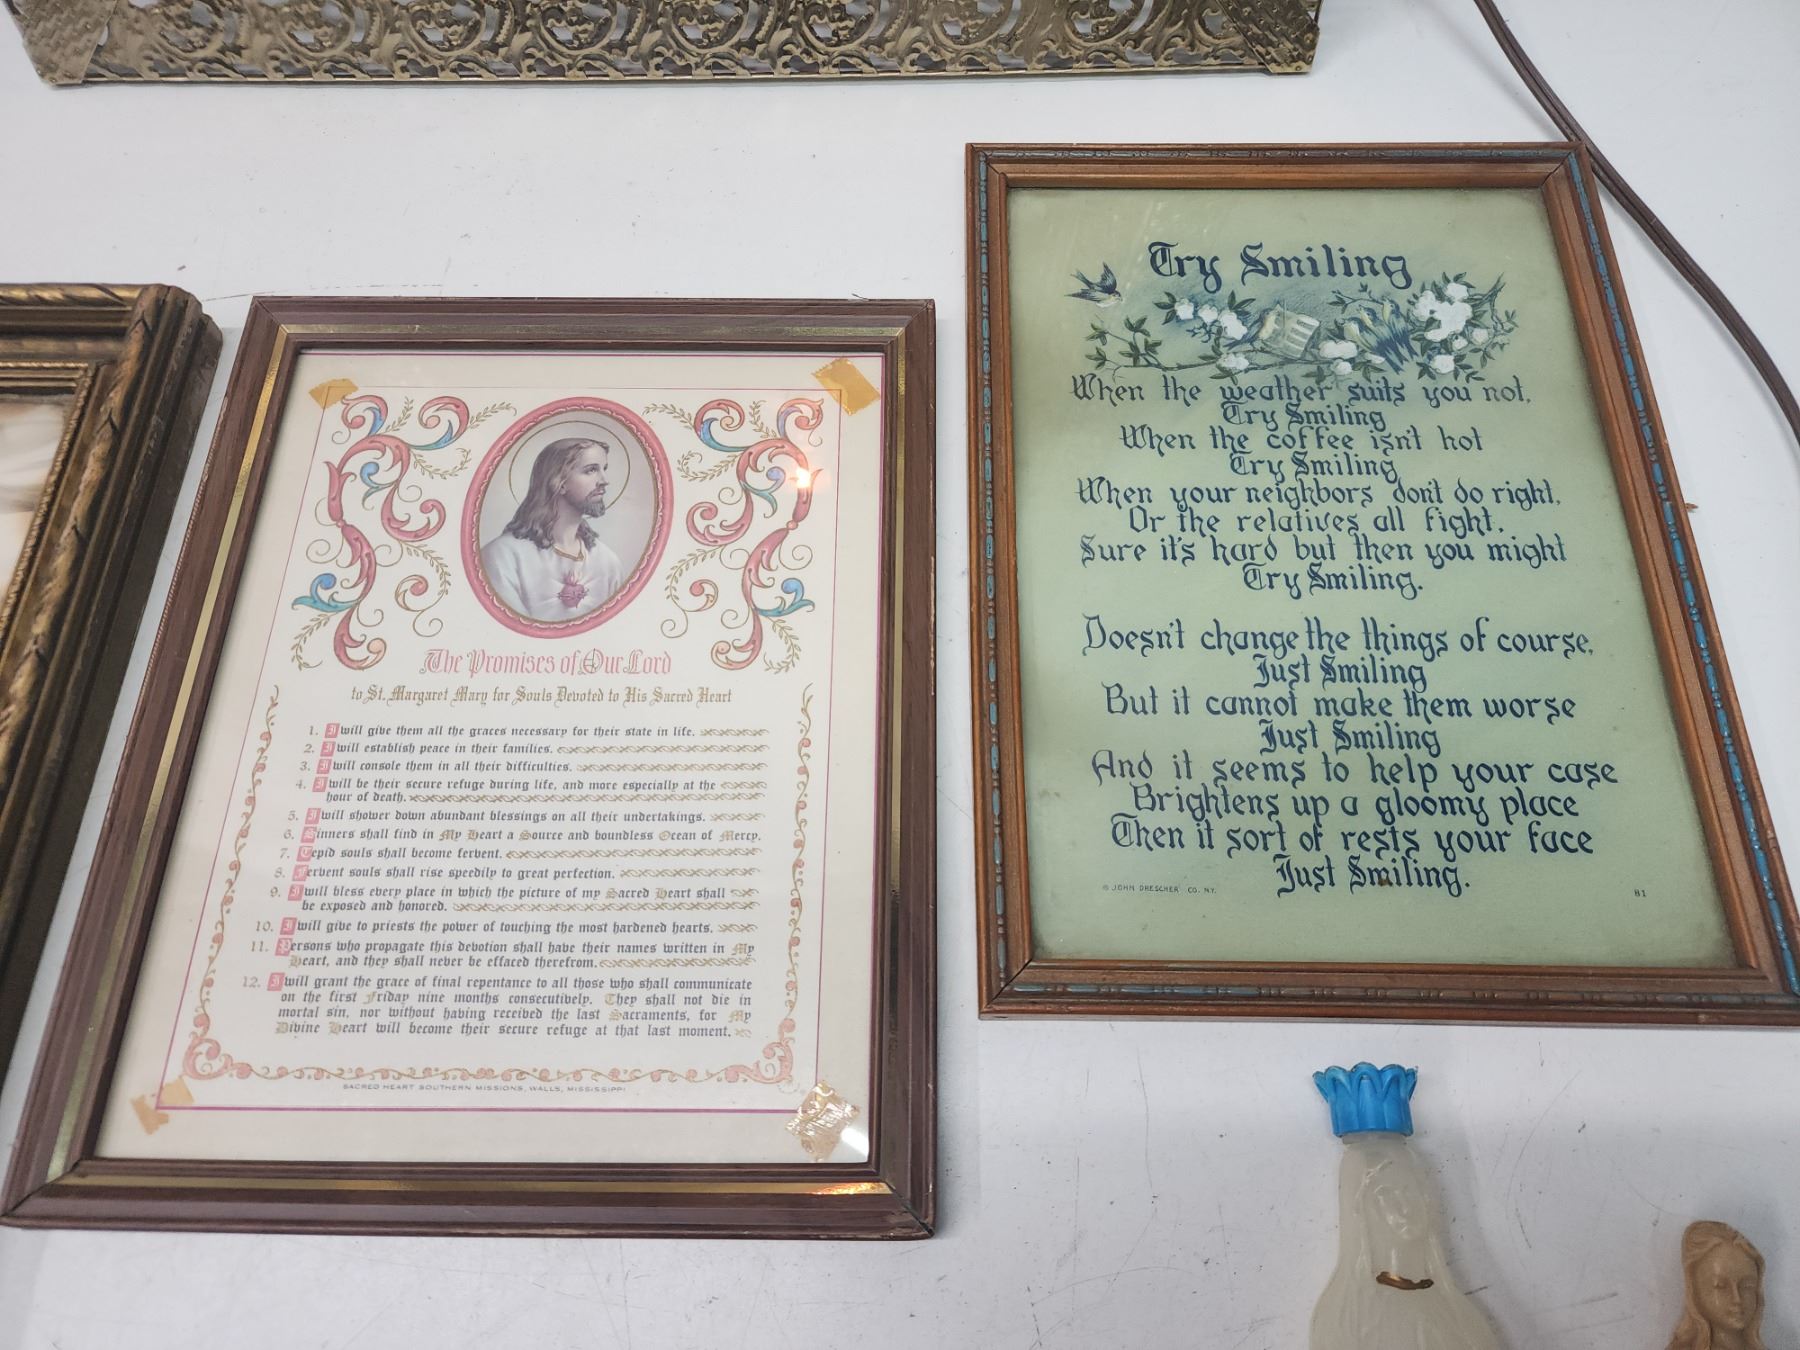 The Promises of Our Lord
to St. Margaret Mary for Souls Devoted to His Sacred Heart
1. I will give them all the graces necessary for their state in life.
2. I will establish peace in their families.
3. I will console them in all their difficulties.
4. I will be their secure refuge during life, and more especially at the
hour of death.
5. I will shower down abundant blessings on all their undertakings.
6. Sinners shall find in My Heart a Source and boundless Ocean of Mercy.
7. Tepid souls shall become fervent.
8. Fervent souls shall rise speedily to great perfection.
9. I will bless every place in which the picture of my Sacred Heart shall
be exposed and honored.
10. I will give to priests the power of touching the most hardened hearts.
11. Persons who propagate this devotion shall have their names written in My
Heart, and they shall never be effaced therefrom.
12. I will grant the grace of final repentance to all those who shall communicate
on the first Friday nine months consecutively. They shall not die in
mortal sin, nor without having received the last Sacraments, for My
Divine Heart will become their secure refuge at that last moment.
SACRED HEART SOUTHERN MISSIONS, WALLS, MISSISSIPPI
Try Smiling
When the weather suits you not,
Try Smiling
When the coffee isn't hot
Try Smiling
When your neighbors don't do right,
Or the relatives all fight,
Sure it's hard but then you might
Try Smiling.
Doesn't change the things of course,
Just Smiling
But it cannot make them worse
Just Smiling
And it seems to help your case
Brightens up a gloomy place
Then it sort of rests your face
Just Smiling.
© JOHN DRESCHER CO. N.Y.
81